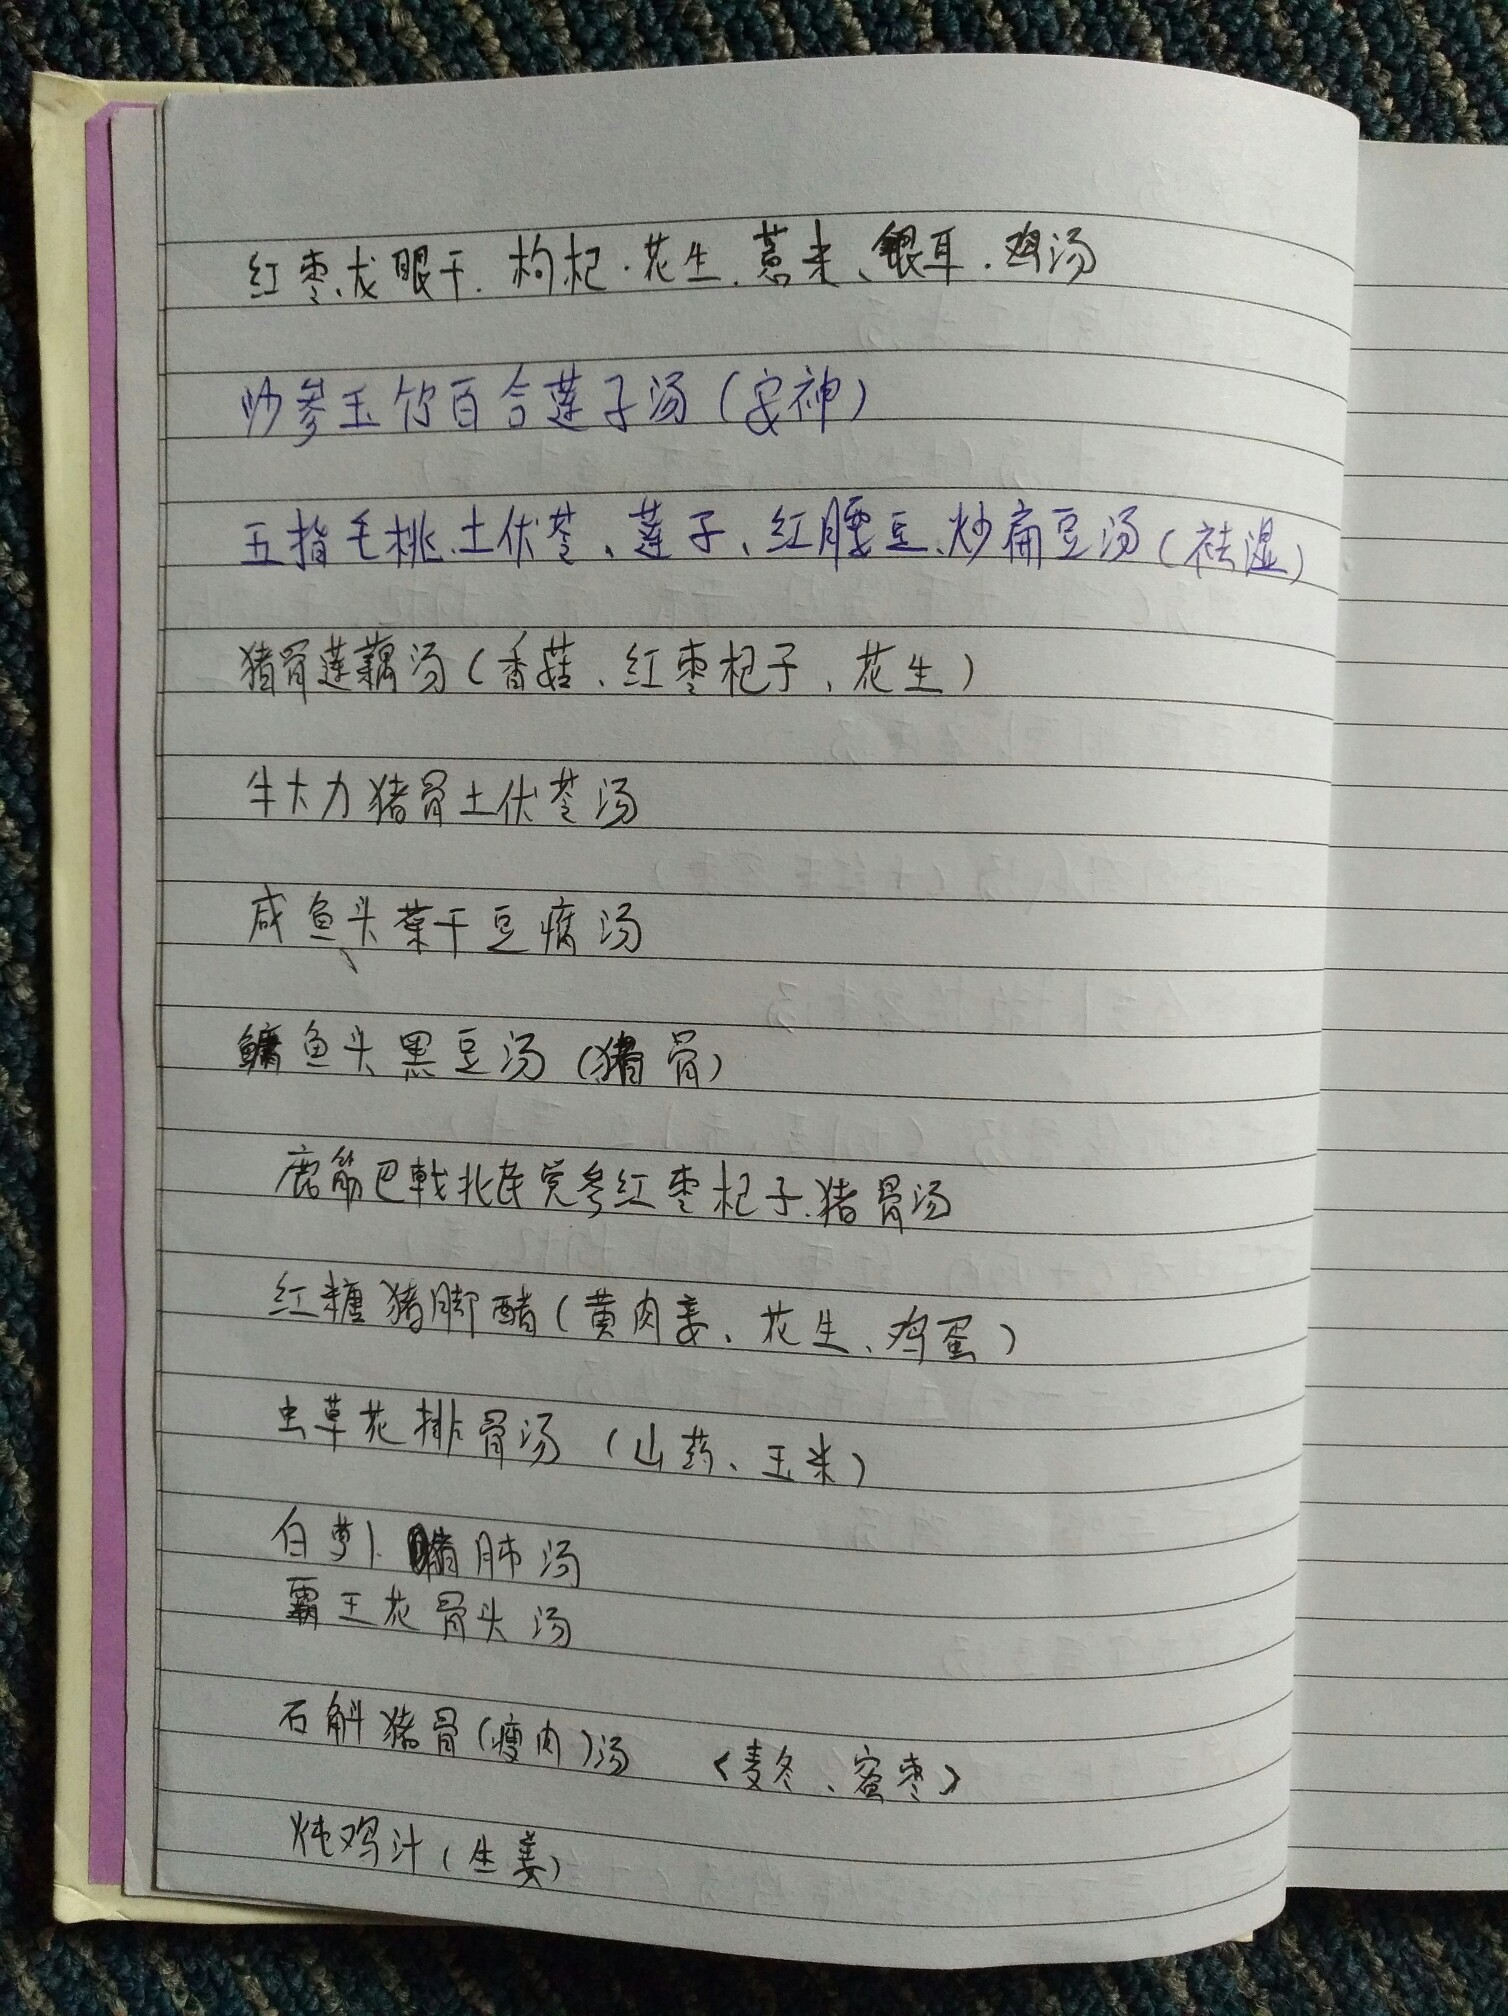 红枣、龙眼干、枸杞、花生、薏米、银耳、鸡汤
沙参玉竹百合莲子汤(安神)
五指毛桃、土伏苓、莲子、红腰豆、炒扁豆汤(祛湿)
猪骨莲藕汤(香菇、红枣杞子、花生)
牛大力猪骨土伏苓汤
咸鱼头菜干豆腐汤
鳙鱼头黑豆汤(猪骨)
鹿筋巴戟北芪党参红枣杞子猪骨汤
红糖猪脚醋(黄肉姜、花生、鸡蛋)
虫草花排骨汤(山药、玉米)
白萝卜猪肺汤
霸王花骨头汤
石斛猪骨(瘦肉)汤 〈麦冬、蜜枣〉
炖鸡汁(生姜)